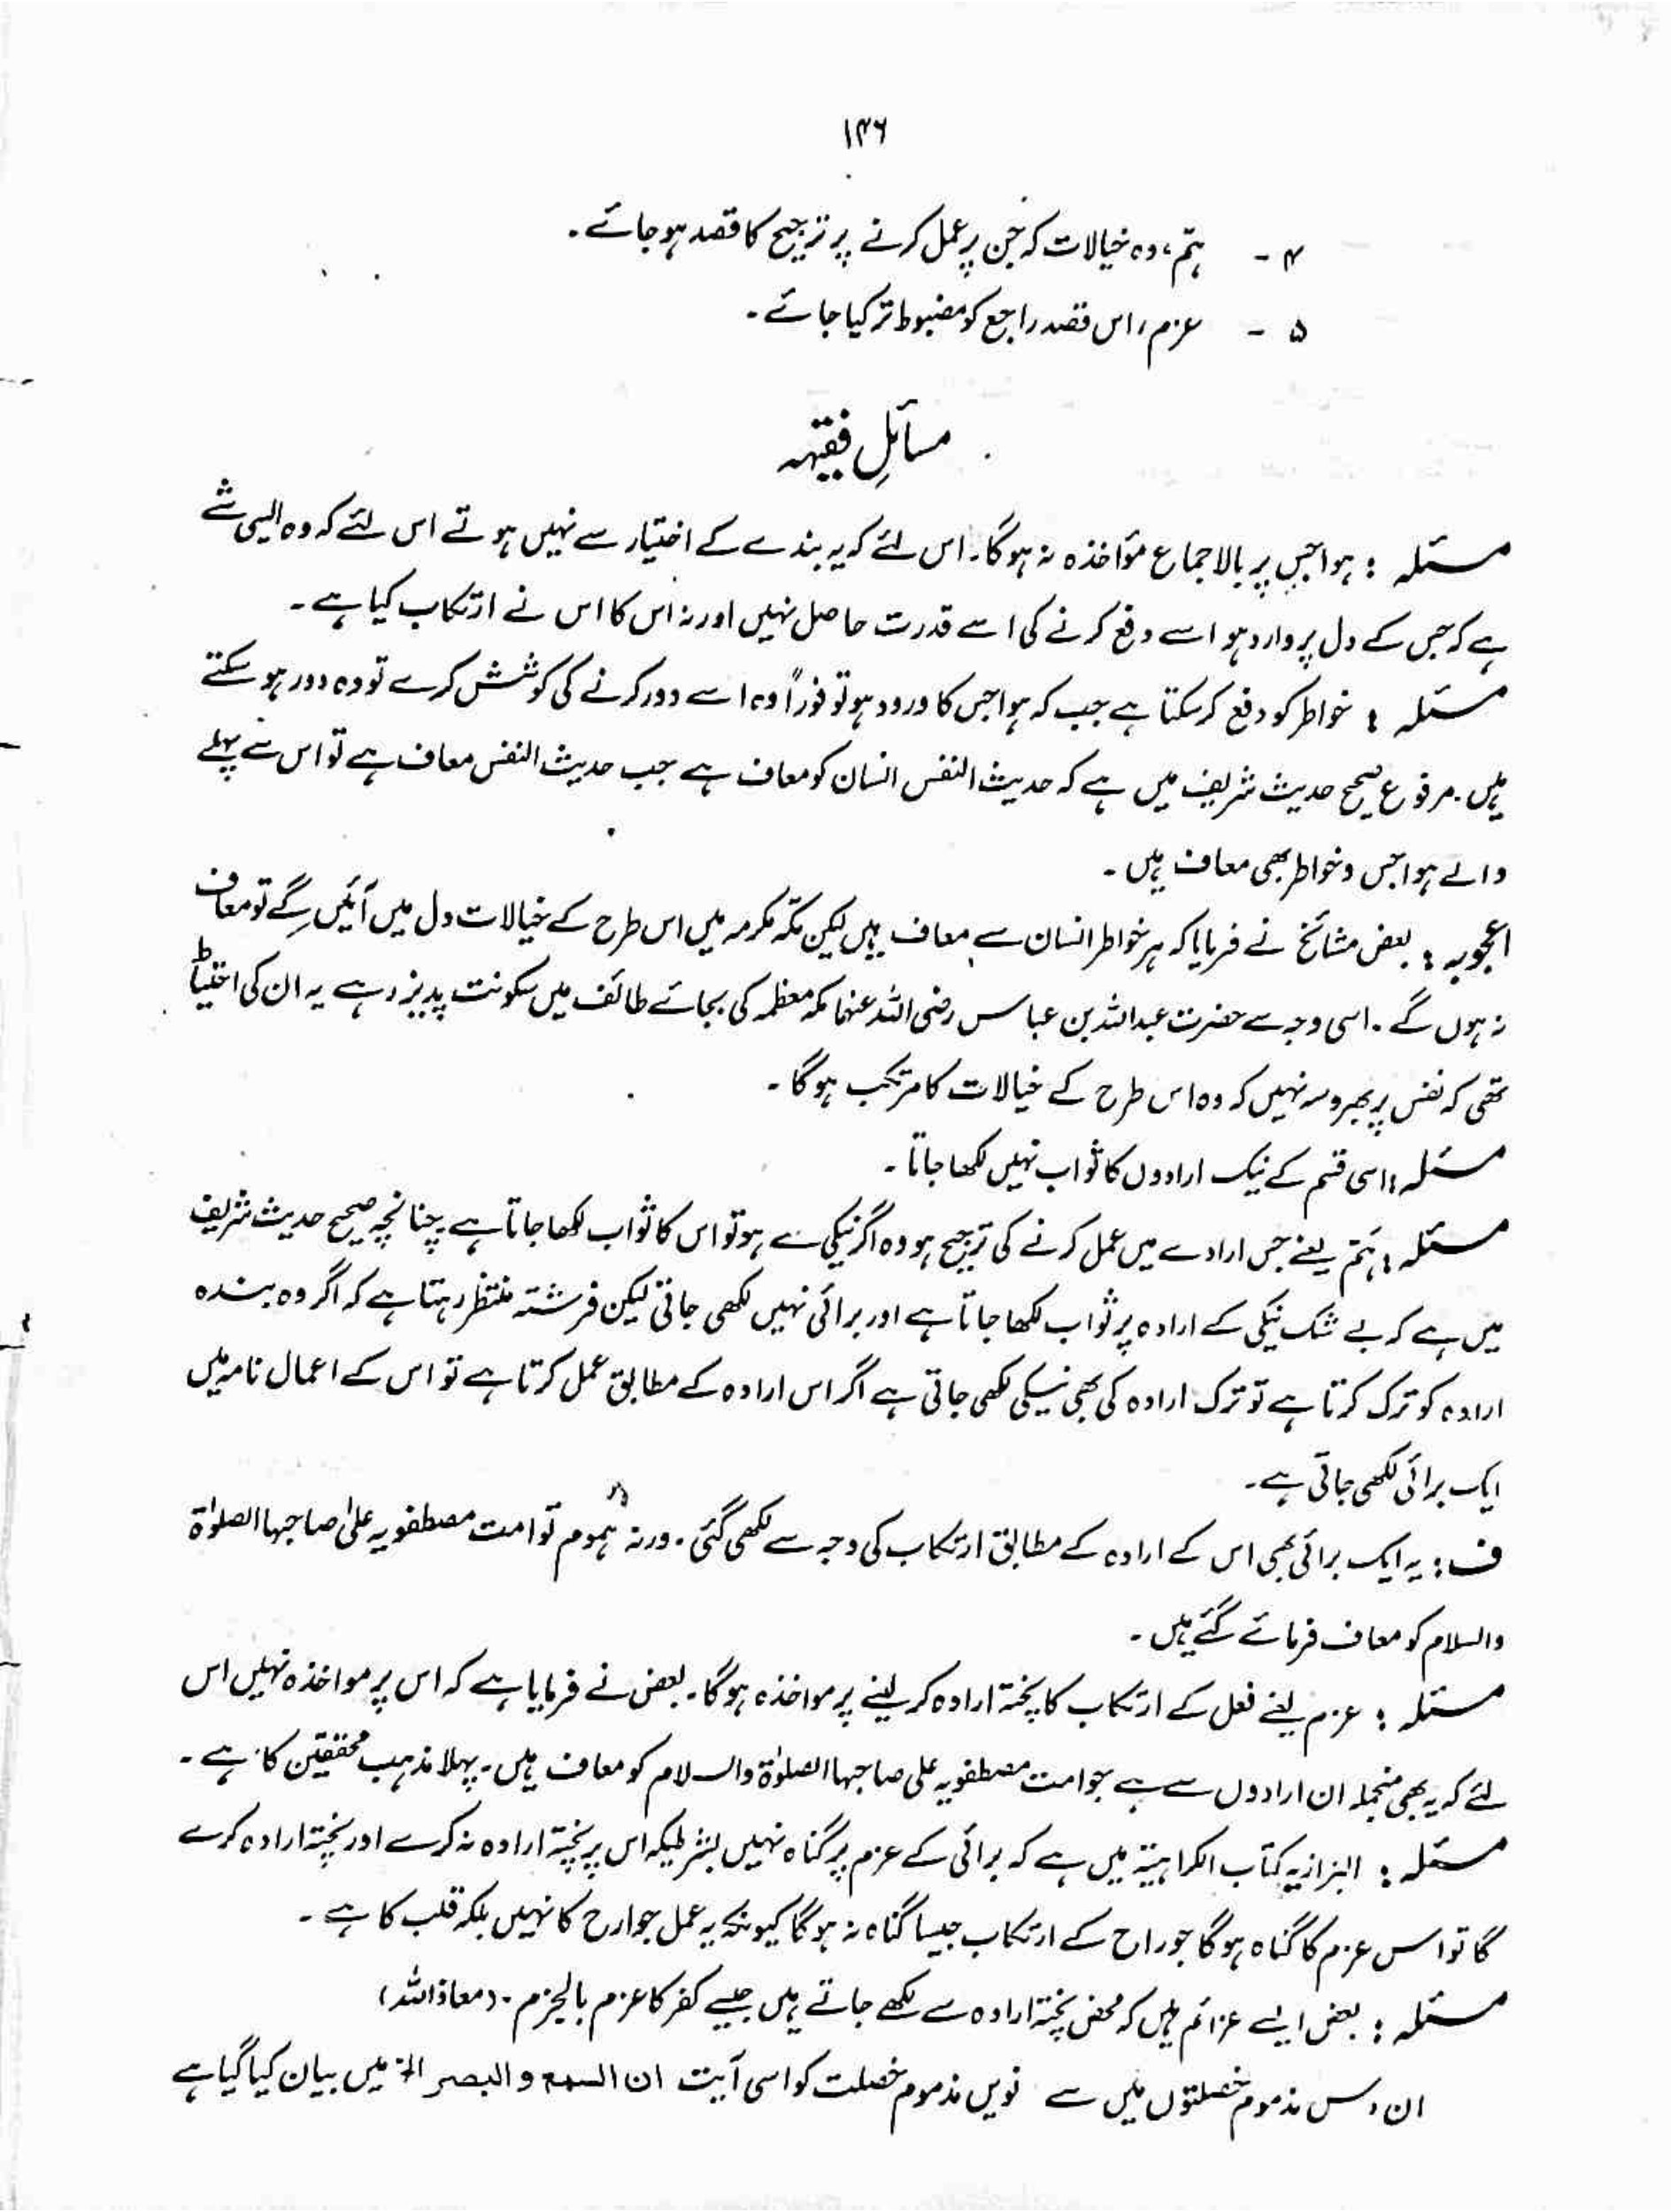 ۱۴۶
۴ - ہمّ، وہ خیالات کہ جن پر عمل کرنے پر ترجیح کا قصد ہو جائے۔
۵ - عزم، اس قصد راجع کو مضبوط تر کیا جائے۔
مسائلِ فقیہہ
مسئلہ : ہواجس پر بالاجماع مؤاخذہ نہ ہوگا۔ اس لئے کہ یہ بندے کے اختیار سے نہیں ہوتے اس لئے کہ وہ ایسی شے
ہے کہ جس کے دل پر وارد ہو اسے دفع کرنے کی اسے قدرت حاصل نہیں اور نہ اس کا اس نے ارتکاب کیا ہے۔
مسئلہ : خواطر کو دفع کر سکتا ہے جب کہ ہواجس کا ورود ہو تو فوراً وہ اسے دور کرنے کی کوشش کرے تو وہ دور ہو سکتے
ہیں۔ مرفوع صحیح حدیث شریف میں ہے کہ حدیث النفس انسان کو معاف ہے جب حدیث النفس معاف ہے تو اس سے پہلے
والے ہواجس و خواطر بھی معاف ہیں۔
اعجوبہ : بعض مشائخ نے فرمایا کہ ہر خواطر انسان سے معاف ہیں لیکن مکّہ مکرمہ میں اس طرح کے خیالات دل میں آئیں گے تو معاف
نہ ہوں گے۔ اسی وجہ سے حضرت عبداللہ بن عباس رضی اللہ عنہما مکہ معظمہ کی بجائے طائف میں سکونت پذیر رہے یہ ان کی احتیاط
تھی کہ نفس پر بھروسہ نہیں کہ وہ اس طرح کے خیالات کا مرتکب ہوگا۔
مسئلہ : اسی قسم کے نیک ارادوں کا ثواب نہیں لکھا جاتا۔
مسئلہ : ہَمّ یعنے جس ارادے میں عمل کرنے کی ترجیح ہو وہ اگر نیکی سے ہو تو اس کا ثواب لکھا جاتا ہے چنانچہ صحیح حدیث شریف
میں ہے کہ بے شک نیکی کے ارادہ پر ثواب لکھا جاتا ہے اور برائی نہیں لکھی جاتی لیکن فرشتہ منتظر رہتا ہے کہ اگر وہ بندہ
ارادہ کو ترک کرتا ہے تو ترک ارادہ کی بھی نیکی لکھی جاتی ہے اگر اس ارادہ کے مطابق عمل کرتا ہے تو اس کے اعمال نامہ میں
ایک برائی لکھی جاتی ہے۔
ف : یہ ایک برائی بھی اس کے ارادہ کے مطابق ارتکاب کی وجہ سے لکھی گئی۔ ورنہ ہموم تو امت مصطفویہ علیٰ صاحبہا الصلوٰۃ
والسلام کو معاف فرمائے گئے ہیں۔
مسئلہ : عزم یعنے فعل کے ارتکاب کا پختہ ارادہ کر لینے پر مواخذہ ہوگا۔ بعض نے فرمایا ہے کہ اس پر مواخذہ نہیں اس
لئے کہ یہ بھی منجملہ ان ارادوں سے ہے جو امت مصطفویہ علی صاحبہا الصلوٰۃ والسلام کو معاف ہیں۔ پہلا مذہب محققین کا ہے۔
مسئلہ : البزازیہ کتاب الکراہیۃ میں ہے کہ برائی کے عزم پر گناہ نہیں بشرطیکہ اس پر پختہ ارادہ نہ کرے اور پختہ ارادہ کرے
گا تو اس عزم کا گناہ ہوگا جوراح کے ارتکاب جیسا گناہ نہ ہوگا کیونکہ یہ عمل جوارح کا نہیں بلکہ قلب کا ہے۔
مسئلہ : بعض ایسے عزائم ہیں کہ محض پختہ ارادہ سے لکھے جاتے ہیں جیسے کفر کا عزم بالجزم۔ (معاذ اللہ)
ان دس مذموم خصلتوں میں سے نویں مذموم خصلت کو اسی آیت ان السمع و البصر الخ میں بیان کیا گیا ہے